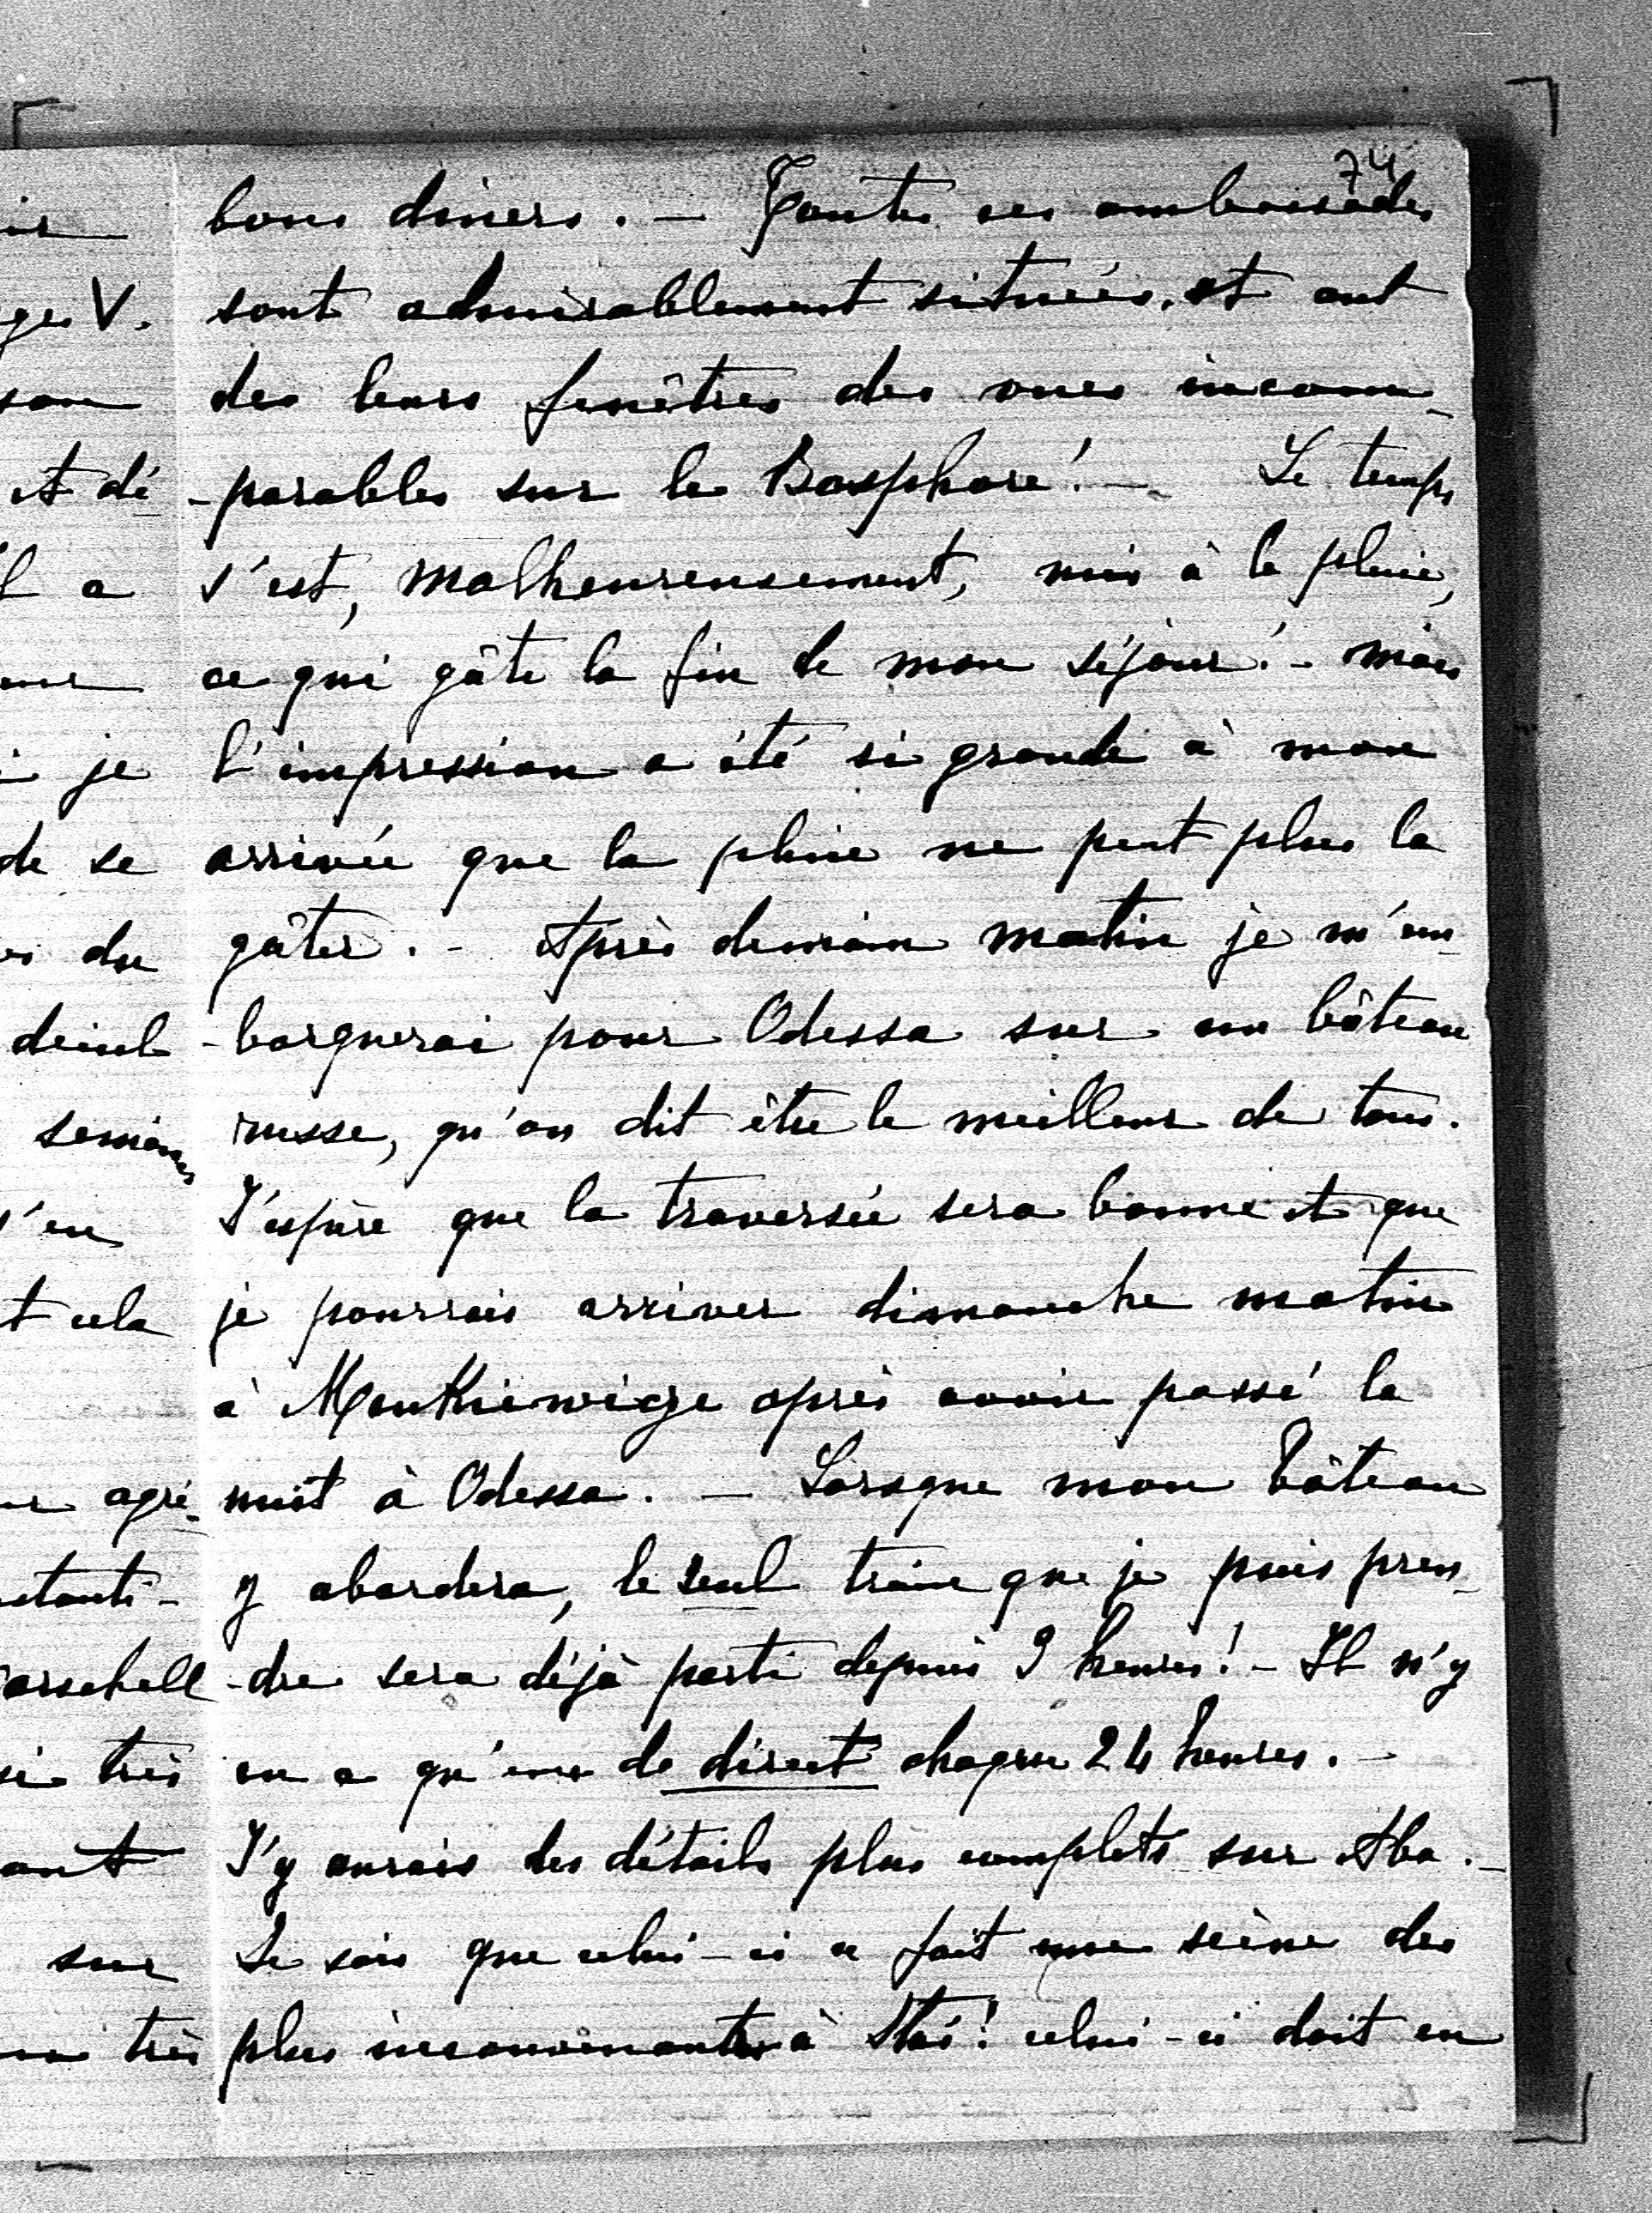 74
bons diners. — Toutes ces ambassades
sont admirablement situées, et ont
des leurs fenêtres des vues incom-
-parables sur le Bosphore! — Le temps
s'est, malheureusement, mis à la pluie,
ce qui gâte la fin de mon séjour! - mais
l'impression a été si grande à mon
arrivée que la pluie ne peut plus la
gâter. - Après demain matin je m'em-
-barquerai pour Odessa sur un bâteau
russe, qu'on dit être le meilleur de tous.
J'espère que la traversée sera bonne et que
je pourrais arriver dimanche matin
à après avoir passé la
nuit à Odessa. — Lorsque mon bâteau
y abordera, le seul train que je puis pren-
-dre sera déjà parti depuis 9 heures! - Il n'y
en a qu'un de direct chaque 24 heures. -
J'y aurais des détails plus complets sur Aba. -
Je sais que celui-ci a fait une scène des
plus inconvenantes à Stas! celui-ci doit en